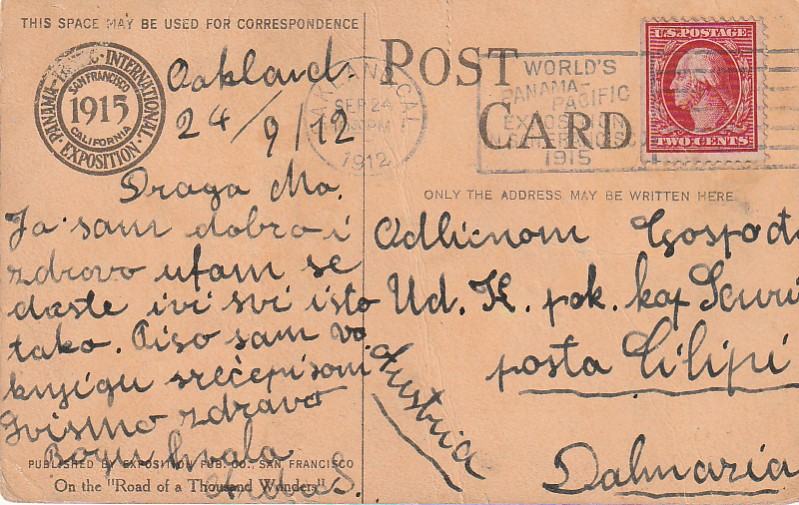 THIS SPACE MAY BE USED FOR CORRESPONDENCE
PANAMA-PACIFIC-INTERNATIONAL
SAN FRANCISCO
1915
CALIFORNIA
EXPOSITION
Oakland
24/9/12
Draga Ma.
Ja sam dobro i
zdravo ufam se
daste ivi svi isto
tako. Piso sam va
knjigu
Svismo zdravo
Bogu hvala
PUBLISHED BY EXPOSITION PUB. CO., SAN FRANCISCO
On the "Road of a Thousand Wonders"
POST
CARD
OAKLAND, CAL.
SEP 24
30PM
1912
WORLD'S
PANAMA-
PACIFIC
EXPOSITION
IN SAN FRANCISCO
1915
U.S. POSTAGE
TWO CENTS
ONLY THE ADDRESS MAY BE WRITTEN HERE
Odlicnom Gospođi
Ud. K. pok. kap
posta Cilipi
Austria
Dalmazia